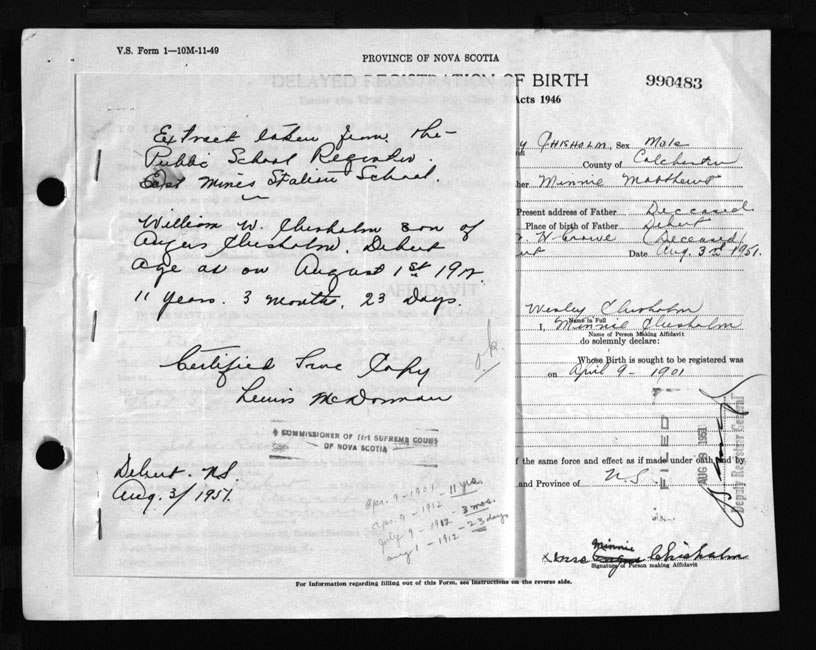 V.S. Form 1—10M-11-49
PROVINCE OF NOVA SCOTIA
DELAYED REGISTRATION OF BIRTH
990483
Acts 1946
Extract taken from the
Public School Register.
East Mines Station School.
William W. Chisholm son of
Angus Chisholm, Debert
age as on August 1st 1912.
11 years. 3 months, 23 days.
Certified True Copy
Lewis McDorman
COMMISSIONER OF THE SUPREME COURT
OF NOVA SCOTIA
Debert. N.S.
Aug. 3/1951.
Apr. 9 - 1901
Apr. 9 - 1912 - 11 yrs.
July 9 - 1912 - 3 mos.
Aug 1 - 1912 - 23 days
o.k.
y CHISHOLM, Sex Male
County of Colchester
her Minnie Matthews
Present address of Father Deceased
Place of birth of Father Debert
Crowe (Deceased)
Date Aug. 3rd 1951.
Wesley Chisholm
Name in Full
I, Minnie Chisholm
Name of Person Making Affidavit
do solemnly declare:
Whose Birth is sought to be registered was
on April 9 - 1901
FILED
AUG 1951
Deputy Registrar General
f the same force and effect as if made under oath and by
and Province of N.S.
x Mrs Minnie Chisholm
Signature of Person making Affidavit
For Information regarding filling out of this Form, see Instructions on the reverse side.